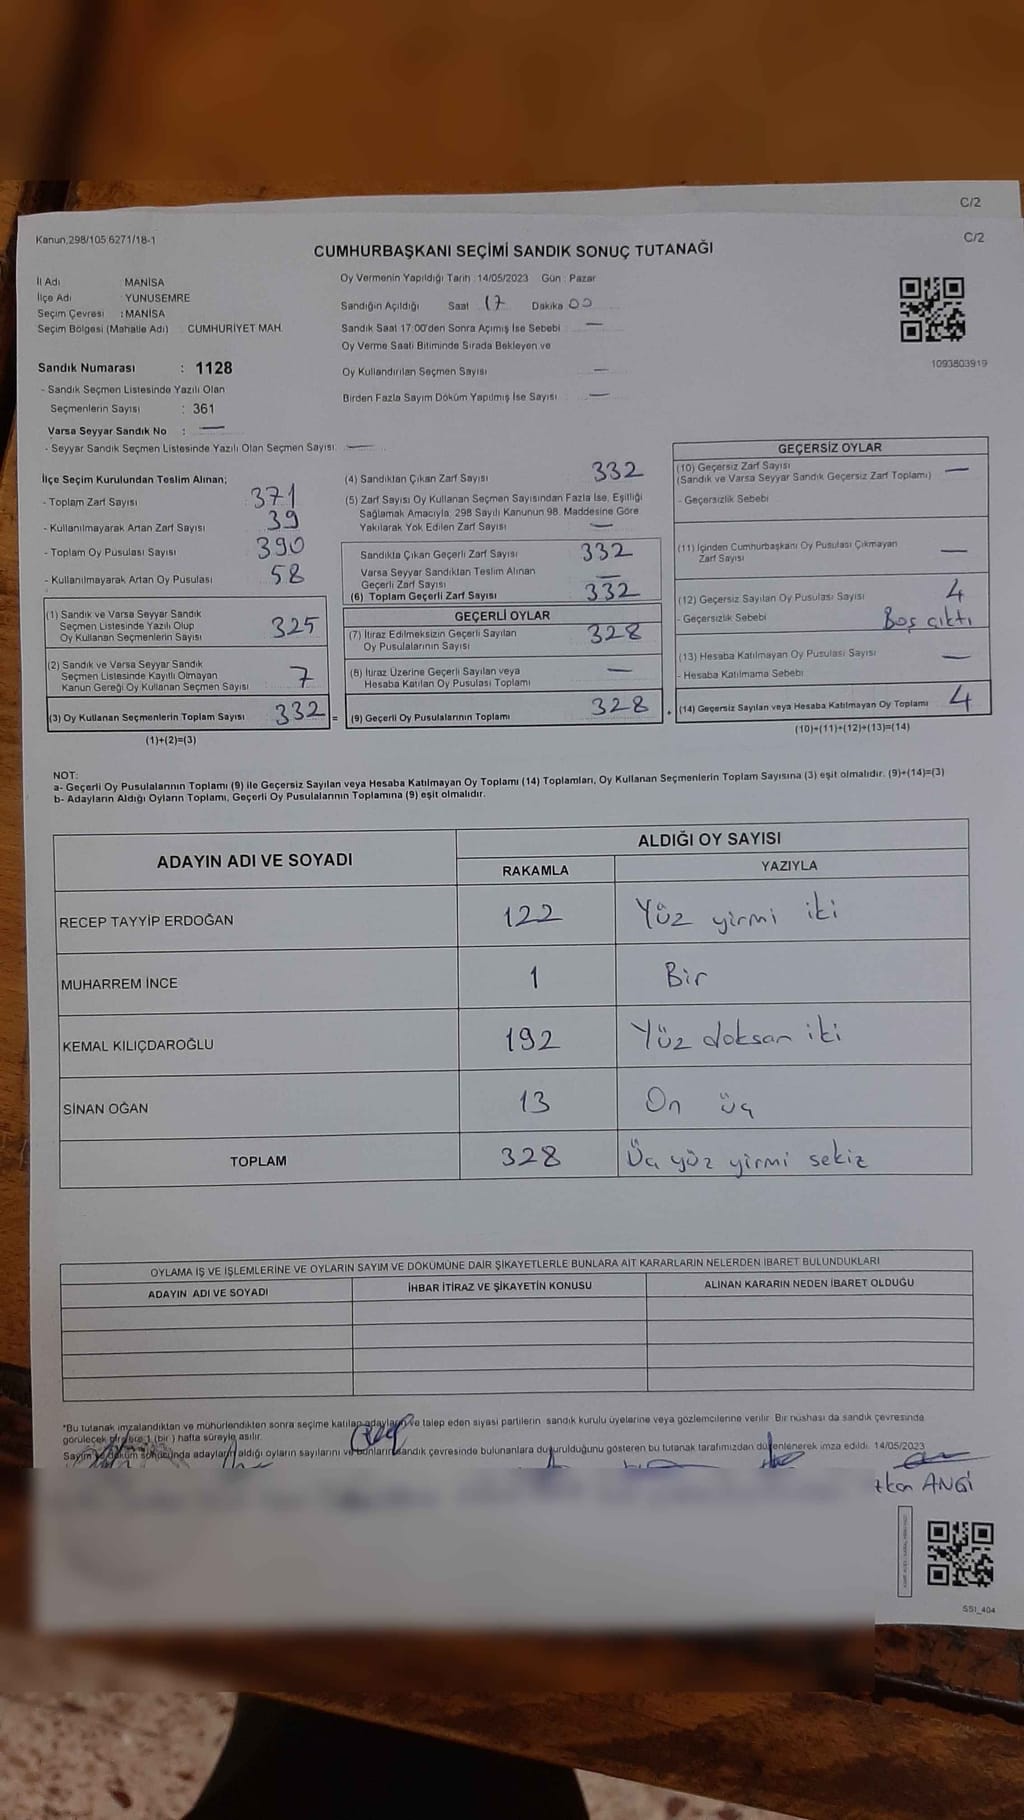 C/2
C/2
Kanun,298/105,6271/18-1
CUMHURBAŞKANI SEÇİMİ SANDIK SONUÇ TUTANAĞI
İl Adı MANİSA
İlçe Adı YUNUSEMRE
Seçim Çevresi : MANİSA
Seçim Bölgesi (Mahalle Adı) CUMHURİYET MAH.
Sandık Numarası : 1128
- Sandık Seçmen Listesinde Yazılı Olan
Seçmenlerin Sayısı : 361
Varsa Seyyar Sandık No : —
- Seyyar Sandık Seçmen Listesinde Yazılı Olan Seçmen Sayısı: —
Oy Vermenin Yapıldığı Tarih : 14/05/2023 Gün : Pazar
Sandığın Açıldığı Saat 17 Dakika 00
Sandık Saat 17:00'den Sonra Açımış İse Sebebi —
Oy Verme Saati Bitiminde Sırada Bekleyen ve
Oy Kullandırılan Seçmen Sayısı —
Birden Fazla Sayım Döküm Yapılmış İse Sayısı —
1093803919
İlçe Seçim Kurulundan Teslim Alınan;
- Toplam Zarf Sayısı 371
- Kullanılmayarak Artan Zarf Sayısı 39
- Toplam Oy Pusulası Sayısı 390
- Kullanılmayarak Artan Oy Pusulası 58
(1) Sandık ve Varsa Seyyar Sandık
Seçmen Listesinde Yazılı Olup
Oy Kullanan Seçmenlerin Sayısı 325
(2) Sandık ve Varsa Seyyar Sandık
Seçmen Listesinde Kayıtlı Olmayan
Kanun Gereği Oy Kullanan Seçmen Sayısı 7
(3) Oy Kullanan Seçmenlerin Toplam Sayısı 332 =
(1)+(2)=(3)
(4) Sandıktan Çıkan Zarf Sayısı 332
(5) Zarf Sayısı Oy Kullanan Seçmen Sayısından Fazla İse, Eşitliği
Sağlamak Amacıyla, 298 Sayılı Kanunun 98. Maddesine Göre
Yakılarak Yok Edilen Zarf Sayısı —
Sandıkta Çıkan Geçerli Zarf Sayısı 332
Varsa Seyyar Sandıktan Teslim Alınan
Geçerli Zarf Sayısı —
(6) Toplam Geçerli Zarf Sayısı 332
GEÇERLİ OYLAR
(7) İtiraz Edilmeksizin Geçerli Sayılan
Oy Pusulalarının Sayısı 328
(8) İtiraz Üzerine Geçerli Sayılan veya
Hesaba Katılan Oy Pusulası Toplamı —
(9) Geçerli Oy Pusulalarının Toplamı 328 +
GEÇERSİZ OYLAR
(10) Geçersiz Zarf Sayısı
(Sandık ve Varsa Seyyar Sandık Geçersiz Zarf Toplamı) —
- Geçersizlik Sebebi
(11) İçinden Cumhurbaşkanı Oy Pusulası Çıkmayan
Zarf Sayısı —
(12) Geçersiz Sayılan Oy Pusulası Sayısı 4
- Geçersizlik Sebebi Boş çıktı
(13) Hesaba Katılmayan Oy Pusulası Sayısı —
- Hesaba Katılmama Sebebi
(14) Geçersiz Sayılan veya Hesaba Katılmayan Oy Toplamı 4
(10)+(11)+(12)+(13)=(14)
NOT:
a- Geçerli Oy Pusulalarının Toplamı (9) ile Geçersiz Sayılan veya Hesaba Katılmayan Oy Toplamı (14) Toplamları, Oy Kullanan Seçmenlerin Toplam Sayısına (3) eşit olmalıdır. (9)+(14)=(3)
b- Adayların Aldığı Oyların Toplamı, Geçerli Oy Pusulalarının Toplamına (9) eşit olmalıdır.
ADAYIN ADI VE SOYADI
ALDIĞI OY SAYISI
RAKAMLA YAZIYLA
RECEP TAYYİP ERDOĞAN 122 Yüz yirmi iki
MUHARREM İNCE 1 Bir
KEMAL KILIÇDAROĞLU 192 Yüz doksan iki
SİNAN OĞAN 13 On üç
TOPLAM 328 Üç yüz yirmi sekiz
OYLAMA İŞ VE İŞLEMLERİNE VE OYLARIN SAYIM VE DÖKÜMÜNE DAİR ŞİKAYETLERLE BUNLARA AİT KARARLARIN NELERDEN İBARET BULUNDUKLARI
ADAYIN ADI VE SOYADI İHBAR İTİRAZ VE ŞİKAYETİN KONUSU ALINAN KARARIN NEDEN İBARET OLDUĞU
*Bu tutanak imzalandıktan ve mühürlendikten sonra seçime katılan adayların ve talep eden siyasi partilerin sandık kurulu üyelerine veya gözlemcilerine verilir. Bir nüshası da sandık çevresinde
görülecek bir yere 1 (bir ) hafta süreyle asılır.
Sayım ve döküm sonucunda adayların aldığı oyların sayılarını ve bunların sandık çevresinde bulunanlara duyurulduğunu gösteren bu tutanak tarafımızdan düzenlenerek imza edildi. 14/05/2023
ANGİ
SSI_404